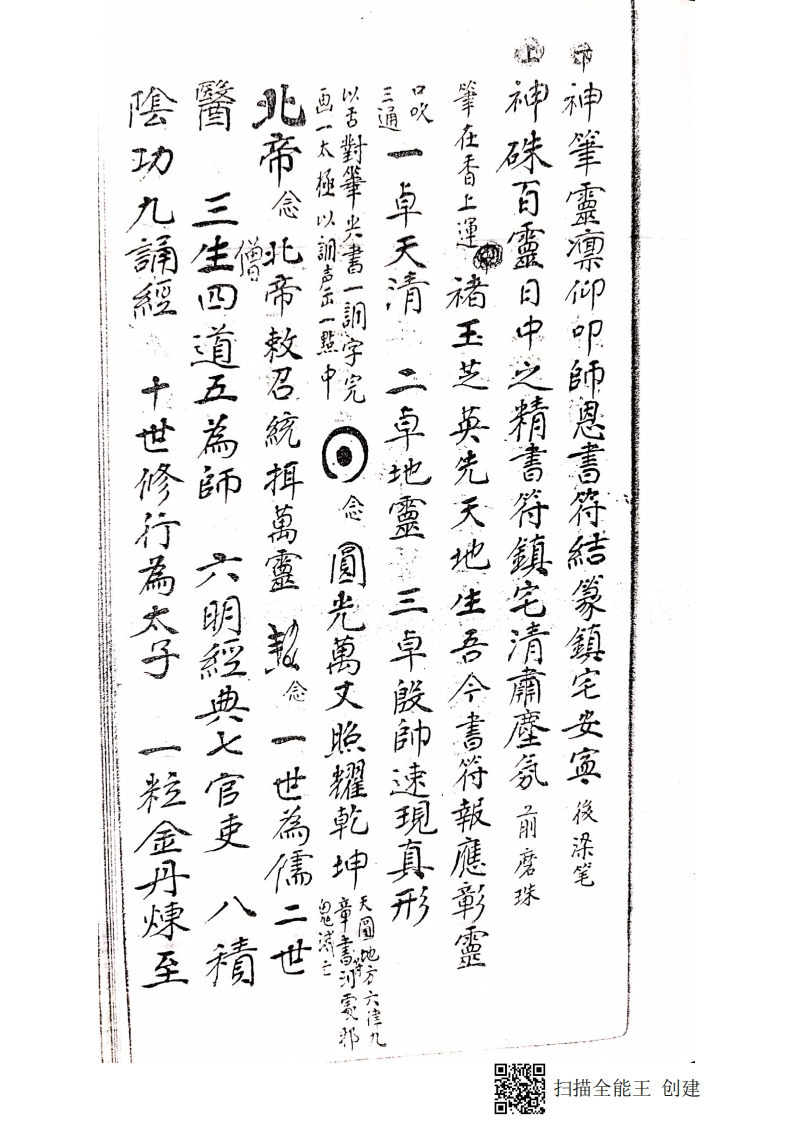 下 神筆靈凛仰叩師恩書符結篆鎮宅安寧 後染笔
上 神硃百靈日中之精書符鎮宅清肅塵氛 前磨珠
筆在香上運 褚玉芝英先天地生吾今書符報應彰靈
口吹三通 一卓天清 二卓地靈 三卓殷帥速現真形
以舌對筆尖書一詷字完画一太極以詷声出一點中 念 圓光萬丈照耀乾坤 天圓地方六律九章書符到處邪鬼滅亡
北帝 念 北帝敕召統押萬靈 念 一世為儒二世
醫 三生僧四道五為師 六明經典七官吏 八積
陰功九誦經 十世修行為太子 一粒金丹煉至
扫描全能王 创建